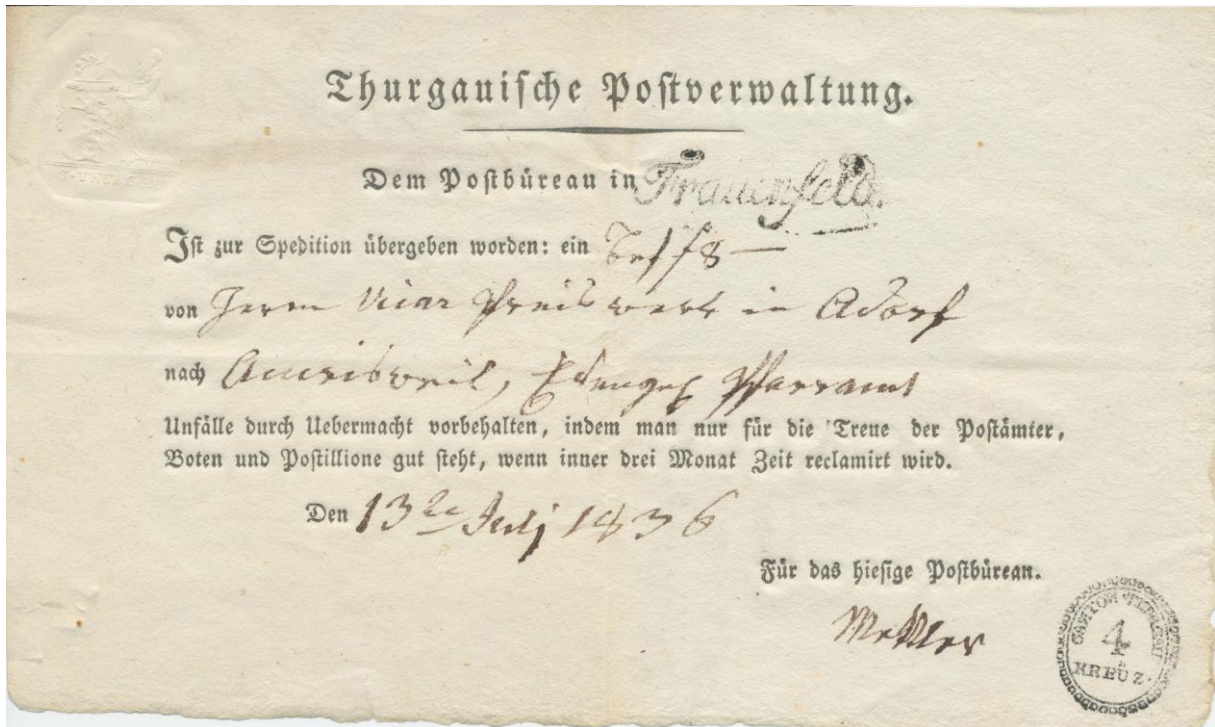 Thurgauische Postverwaltung.
Dem Postbüreau in Frauenfeld.
Ist zur Spedition übergeben worden: ein
von Herrn Vicar Preiswerk in Adorf
nach Amrisweil, Evangel Pfarramt
Unfälle durch Uebermacht vorbehalten, indem man nur für die Treue der Postämter,
Boten und Postillione gut steht, wenn inner drei Monat Zeit reclamirt wird.
Den 13ten Julj 1836
Für das hiesige Postbüreau.
CANTON THURGAU
4
KREUZ.